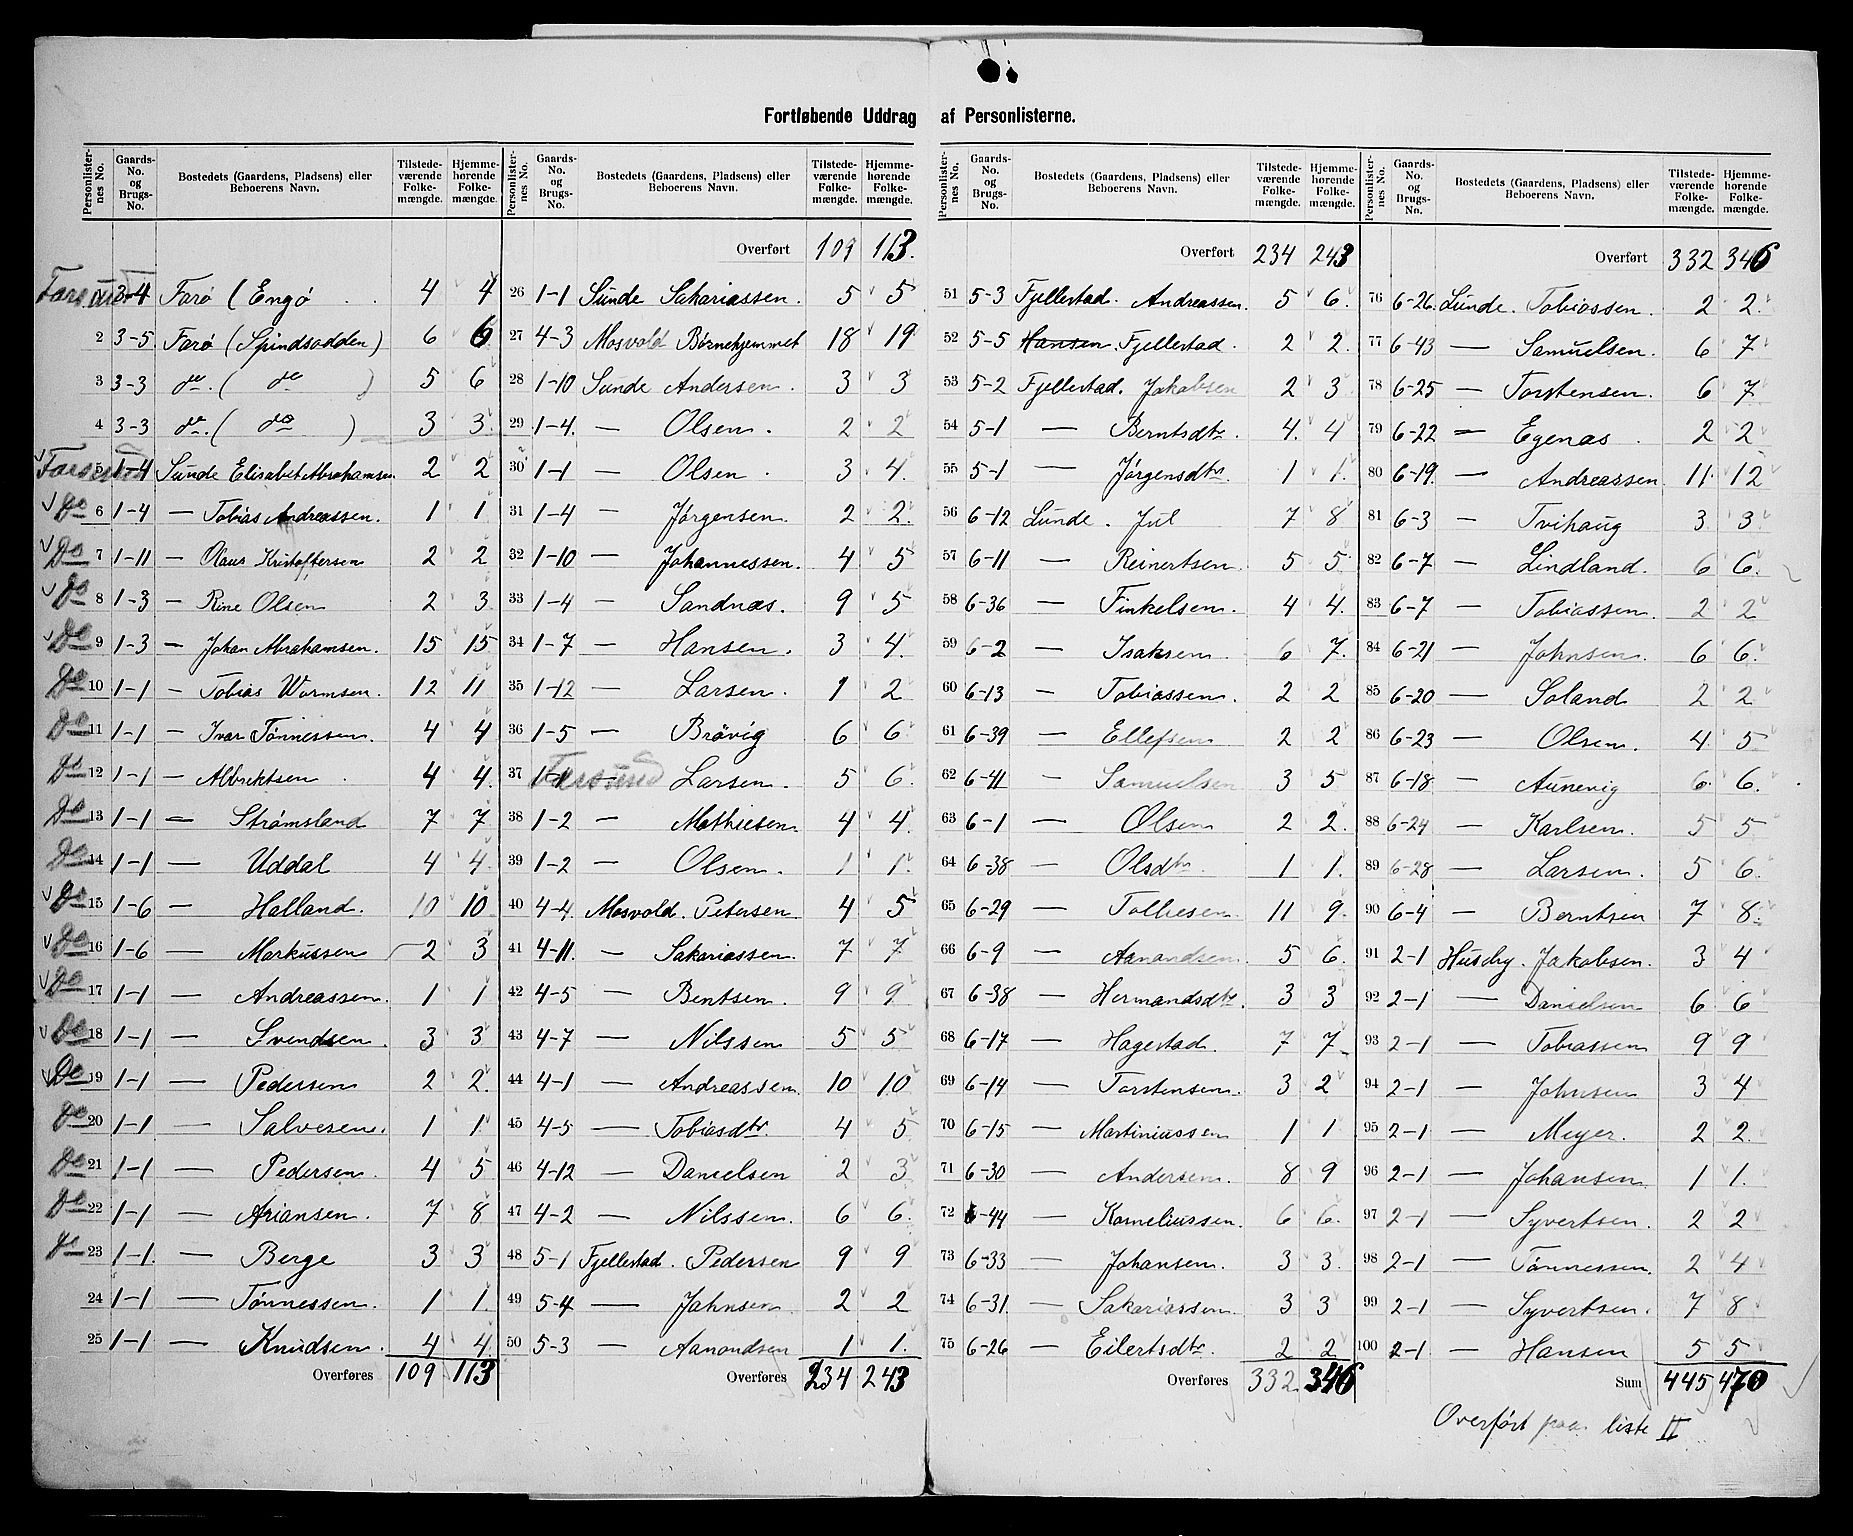 Fortløbende Uddrag af Personlisterne.
Personlisternes No. | Gaards-No. og Brugs-No. | Bostedets (Gaardens, Pladsens) eller Beboerens Navn. | Tilstedeværende Folkemængde. | Hjemmehørende Folkemængde.
Farsund 3-4 Farø (Engø 4 4
2 3-5 Farø (Spindsodden) 6 6
3 3-3 do. ( do ) 5 6
4 3-3 do. ( do ) 3 3
Farsund 5 1-4 Sunde Elisabet Abrahamsen. 2 2
Do 6 1-4 — Tobias Andreassen. 1 1
Do 7 1-11 — Olaus Kristoffersen 2 2
Do 8 1-3 — Rine Olsen 2 3
Do 9 1-3 — Johan Abrahamsen. 15 15
Do 10 1-1 — Tobias Wormsen. 12 11
Do 11 1-1 — Ivar Tønnessen. 4 4
Do 12 1-1 — Albrektsen 4 4.
Do 13 1-1 — Strømsland 7 7
Do 14 1-1 — Uddal 4 4.
Do 15 1-6 — Halland. 10 10
Do 16 1-6 — Markussen 2 3
Do 17 1-1 — Andreassen. 1 1
Do 18 1-1 — Svendsen. 3 3
Do 19 1-1 — Pedersen 2 2.
Do 20 1-1 — Salvesen. 1 1
Do 21 1-1 — Pedersen. 4 5
Do 22 1-1 — Ariansen. 7 8
Do 23 1-1. — Berge 3 3
24 1-1 — Tønnessen. 1 1.
25 1-1 — Knudsen. 4 4.
Overføres 109 113
Overført 109 113.
26 1-1 Sunde Sakariassen. 5 5
27 4-3 Mosvold Børnehjemmet 18 19
28 1-10 Sunde Andersen. 3 3
29 1-4. — Olsen. 2 2
30 1-1 — Olsen. 3 4.
31 1-4 — Jørgensen 2 2.
32 1-10 — Johannessen. 4 5
33 1-4 — Sandnæs. 9 5
34 1-7 — Hansen. 3 4.
35 1-12 — Larsen. 1 2
36 1-5 — Brøvig 6 6
37 Farsund — Larsen. 5 6.
38 1-2 — Mathiesen 4 4.
39 1-2 — Olsen. 1 1.
40 4-4 Mosvold. Petersen 4 5
41 4-11. — Sakariassen. 7 7
42 4-5 — Bentsen. 9 9
43 4-7 — Nilssen 5 5
44 4-1 — Andreassen 10 10
45 4-5 — Tobiasdtr. 4 5
46 4-12 — Danielsen 2 3
47 4-2 — Nilssen. 6 6.
48 5-1 Fjellestad. Pedersen 9 9
49 5-4 — Johnsen 2 2
50 5-3 — Aanondsen 1 1.
Overføres 234 243
Overført 234 243
51 5-3 Fjellestad. Andreassen. 5 6.
52 5-5 Hansen. Fjellestad. 2 2.
53 5-2 Fjellestad. Jakobsen 2 3
54 5-1 — Berntsdtr. 4. 4
55 5-1 — Jørgensdtr. 1 1.
56 6-12 Lunde. Jul 7 8
57 6-11 — Reinertsen. 5 5
58 6-36 — Finkelsen. 4 4.
59 6-2 — Isaksen. 6 7.
60 6-13 — Tobiassen. 2 2
61 6-39 — Ellefsen 2 2
62 6-41 — Samuelsen 3 5
63 6-1 — Olsen 2 2.
64 6-38 — Olsdtr 1 1.
65 6-29 — Tolliesen. 11 9.
66 6-9 — Aanondsen. 5 6.
67 6-38 — Hermandsdtr. 3 3
68 6-17 — Hagestad. 7 7
69 6-14 — Torstensen. 3 2
70 6-15 — Martiniussen 1 1
71 6-30 — Andersen. 8 9
72 6-44 — Korneliussen. 6 6.
73 6-33 — Johansen. 3 3.
74 6-31. — Sakariassen. 3 3
75 6-26 — Eilertsdtr. 2 2
Overføres 332 346
Overført 332 346
76 6-26. Lunde. Tobiassen. 2 2.
77 6-43 — Samuelsen. 6 7
78 6-25 — Torstensen. 6 7
79 6-22 — Egenæs. 2 2
80 6-19. — Andreassen 11. 12
81 6-3 — Tvihaug 3 3.
82 6-7 — Lindland. 6 6.
83 6-7 — Tobiassen. 2 2
84 6-21 — Johnsen. 6 6.
85 6-20 — Soland 2 2
86 6-23 — Olsen. 4. 5
87 6-18 — Aunevig 6. 6.
88 6-24 — Karlsen. 5 5
89 6-28 — Larsen. 5 6.
90 6-4 — Berntsen 7 8.
91 2-1 Huseby. Jakobsen. 3 4
92 2-1 — Danielsen 6 6
93 2-1 — Tobiassen 9 9
94 2-1 — Johnsen 3 4
95 2-1 — Meyer. 2 2.
96 2-1 — Johansen 1 1.
97 2-1 — Syvertsen. 2 2
98 2-1 — Tønnessen. 2 4
99 2-1 — Syvertsen. 7 8
100 2-1 — Hansen 5 5
Sum 445 470
Overført paa liste II